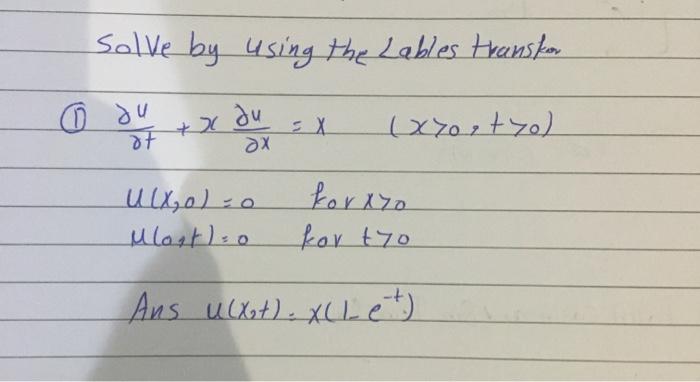 Solve by using the Lables transfom
① ∂u/∂t + x ∂u/∂x = x (x>0, t>0)
U(x,0) = 0 for x>0
u(0,t) = 0 for t>0
Ans u(x,t) = x(1-e^-t)